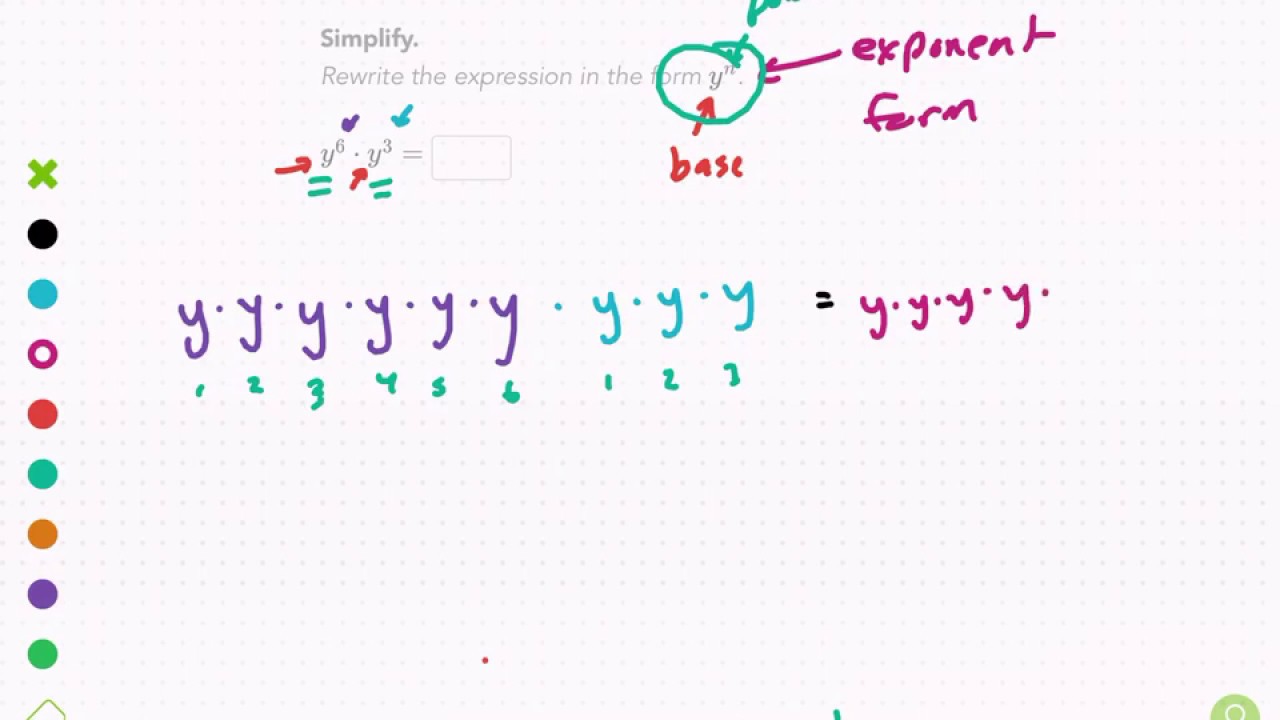 Simplify.
Rewrite the expression in the form yⁿ.
exponent
form
y⁶ · y³ =
base
y · y · y · y · y · y · y · y · y = y · y · y · y ·
1 2 3 4 5 6 1 2 3